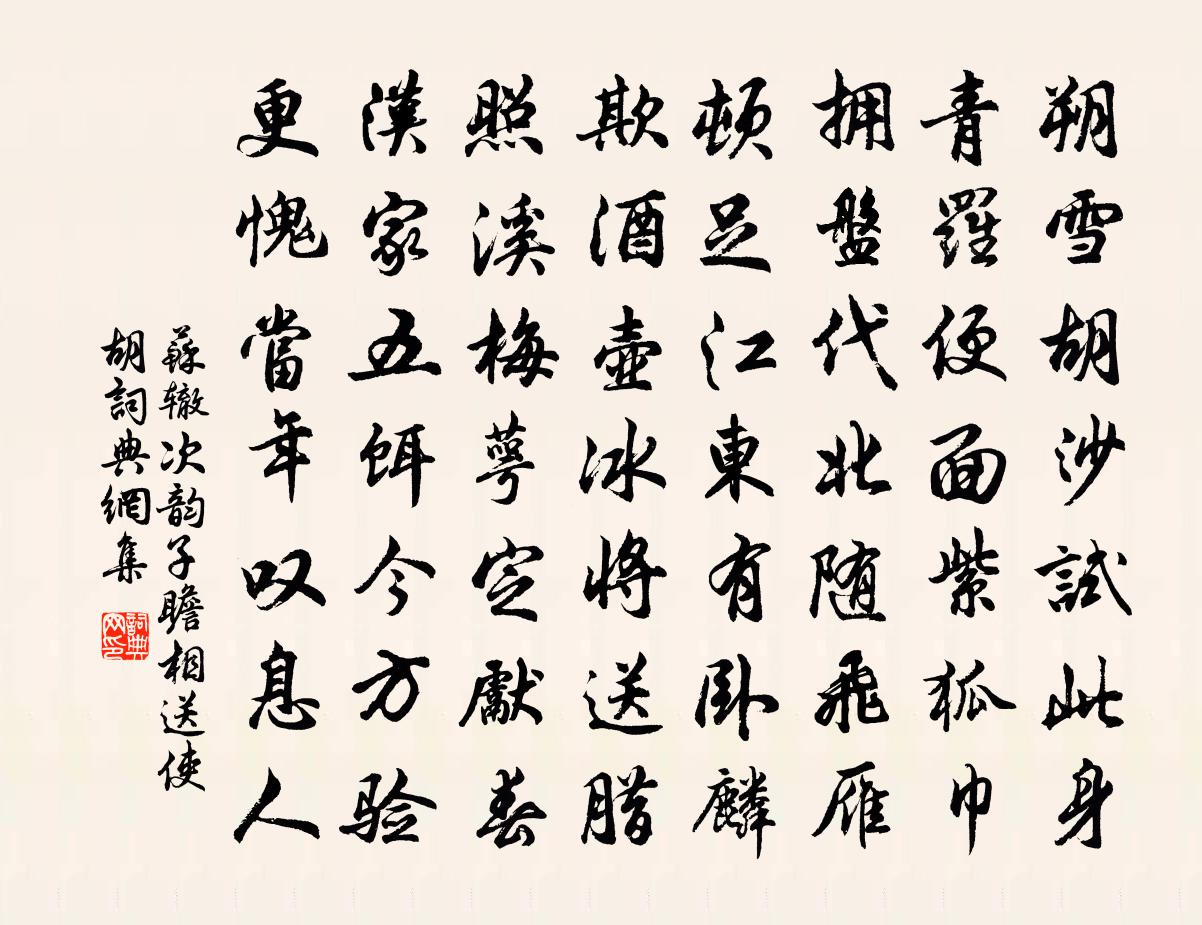 朔雪胡沙試此身
青羅便面紫狐巾
拥盤代北随飛雁
頓足江東有卧麟
欺酒壺冰将送腊
照溪梅萼定獻春
漢家五餌今方验
更愧當年叹息人
蘇辙次韵子瞻相送使
胡詞典網集
詞典网印